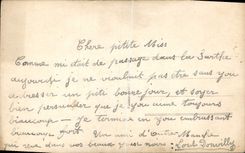 Chere ptite Miss
Comme mi doit de passage dans la Sarthe
aujourdhui je ne voulait pas être sans vous
adresser un ptit bonjour, et soyez
bien persuader que je vous aime toujours
beaucoup — Je termine en vous embrassant
beaucoup fort Un ami d'outre Manche
qui rêve dans vos beaux yeux noirs